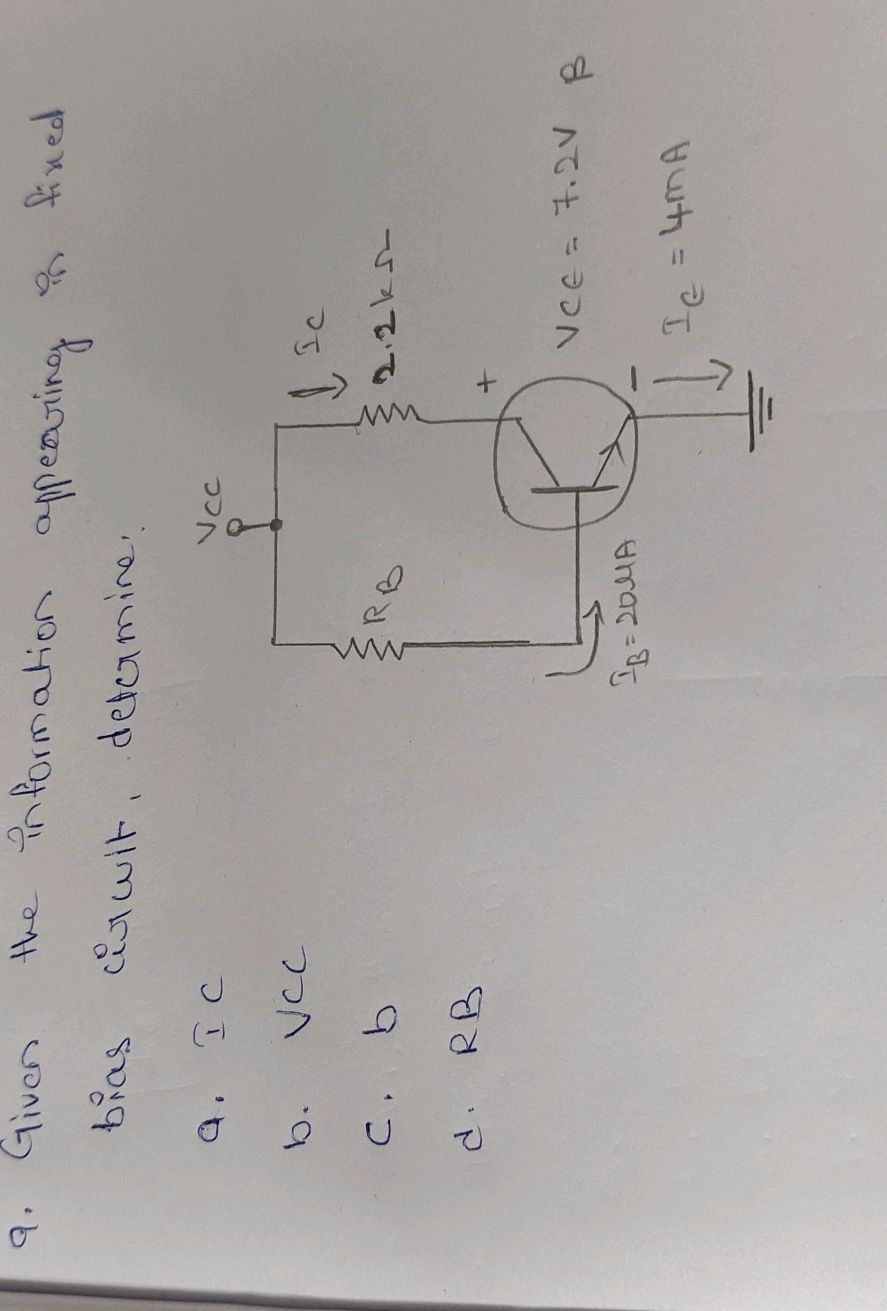 9. Given the information appearing in fixed
bias circuit, determine.
a. IC
b. VCC
c. b
d. RB
VCC
IC
RB
2.2kΩ
+
VCE = 7.2V B
IB = 20μA
−
IE = 4mA